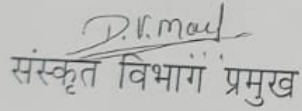 D.V. Mod
संस्कृत विभाग प्रमुख